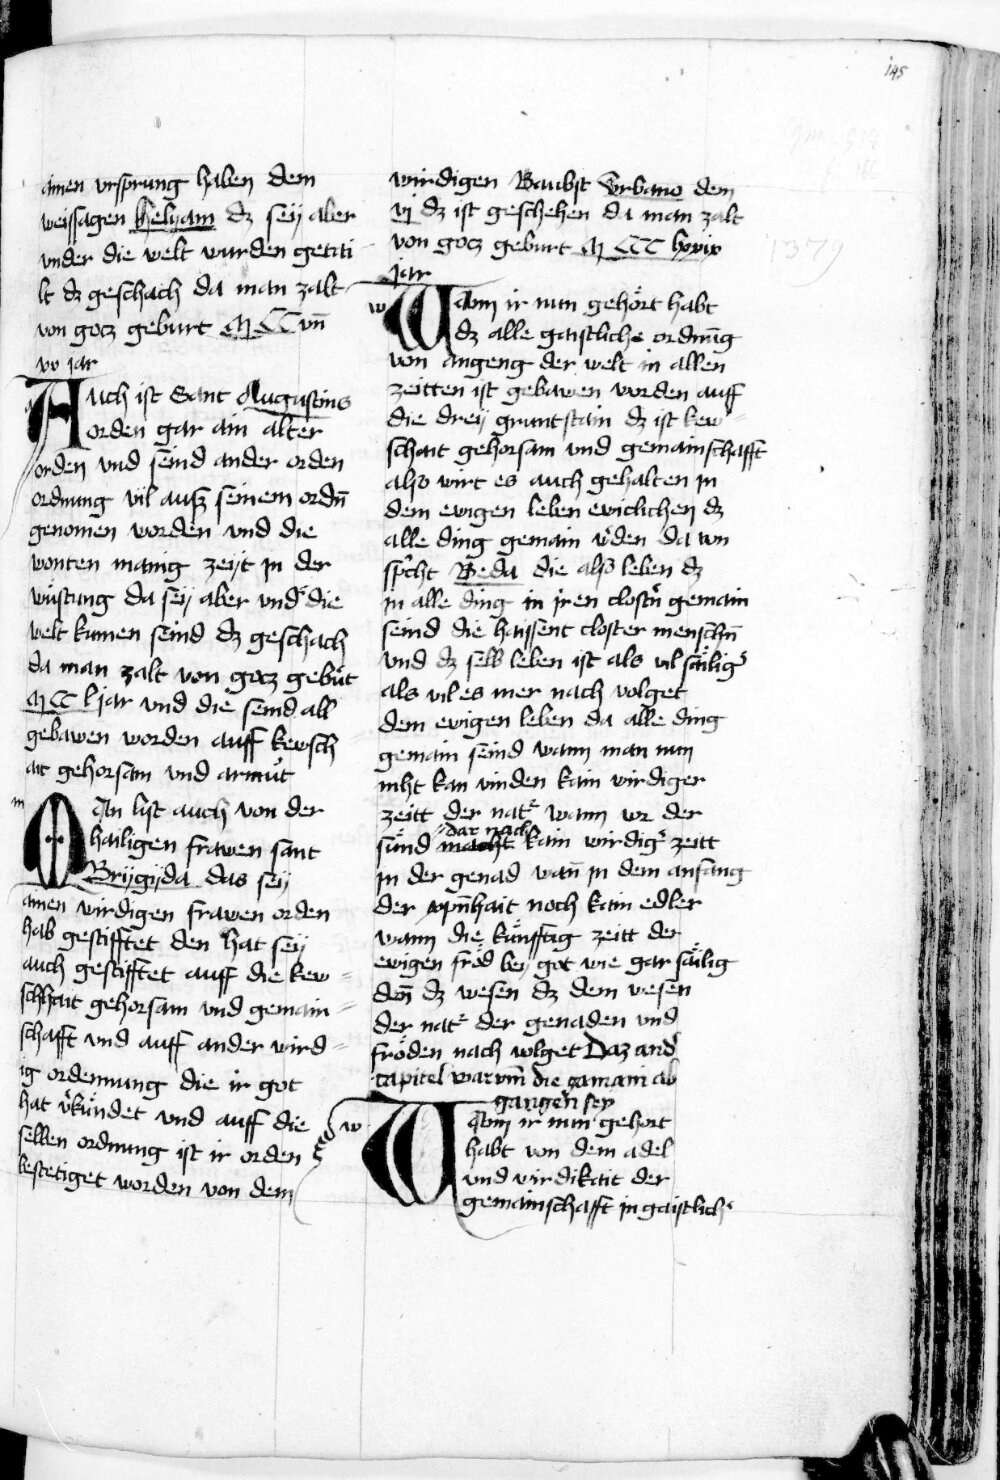 195
ainen vrsprung haben dem
weissagen Helyam dz seÿ aber
vnder die welt wurden getiti
lt dz geschach da man zalt
von gotz geburt M CC vn̄
vo jar
Auch ist Sant Augustins
orden gar ain alter
orden vnd seind ander orden
ordnung vil ausz seinem ordn̄
genomen worden vnd die
wonten manig zeÿt jn der
wüstung da seÿ aber vnd' die
welt kumen seind dz geschach
da man zalt von gotz gebu't
M CC l jar vnd die seind all
gebawen worden auff kewsch
ait gehorsam vnd armu͛t
m
Man list auch von der
hailigen frawen sant
Brÿgÿda das seÿ
ainen wirdigen frawen orden
hab gestifftet den hat seÿ
auch gestifftet auff die kew
schhait gehorsam vnd gemain
schafft vnd auff ander wird
ig ordennung die ir got
hat v'kündet vnd auff die
selben ordnung ist ir orden
bestetiget worden von dem
wirdigen Baubst Vrbano dem
vj dz ist geschehen da man zalt
von gotz geburt M CCC lxxix
jar
1379
w
Wann ir nun gehört habt
dz alle gaistliche ordnūg
von angeng der welt in allen
zeitten ist gebawen worden auff
die dreÿ gruntstain dz ist kew
schait gehorsam vnd gemainschafft
also wirt es auch gehalten jn
dem ewigen leben ewiclichen dz
alle ding gemain w'den da von
sp'cht Beda die also leben dz
jn alle ding in jren clost'n gemain
seind die haissent closter menschn̄
vnd dz selb leben ist als vil sälig'
als vil es mer nach volget
dem ewigen leben da alle ding
gemain seind wann man nun
niht kan vinden kain wirdiger
zeitt der nat' wann vor der
sünd dar nach macht kain wirdig' zeitt
jn der genad wan̄ jn dem anfang
der cristenhait noch kain edler
wann die künfftig zeitt der
ewigen fröd beÿ got wie gar sälig
den̄ dz wesen dz dem wesen
der nat' der genaden vnd
fröden nach volget Daz and'
capitel warvm̄ die gamain ab
gangen seÿ
w
Wann ir nun gehört
habt von dem adel
vnd wirdikait der
gemainschafft jn gaistlich'